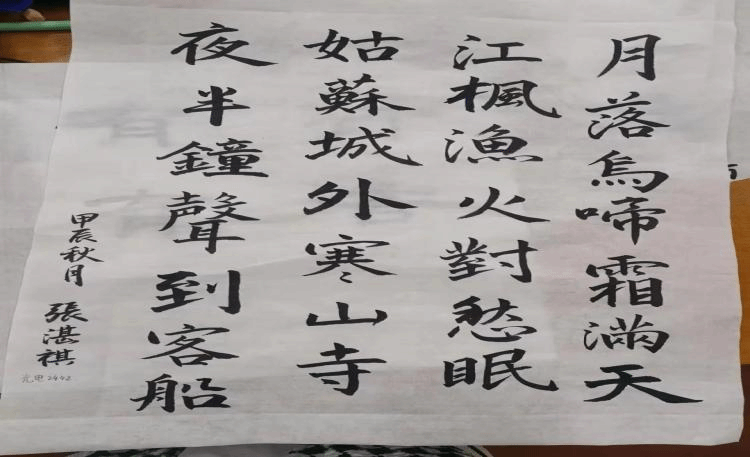 月落烏啼霜滿天
江楓漁火對愁眠
姑蘇城外寒山寺
夜半鐘聲到客船
甲辰秋月
張湛祺
光电2442